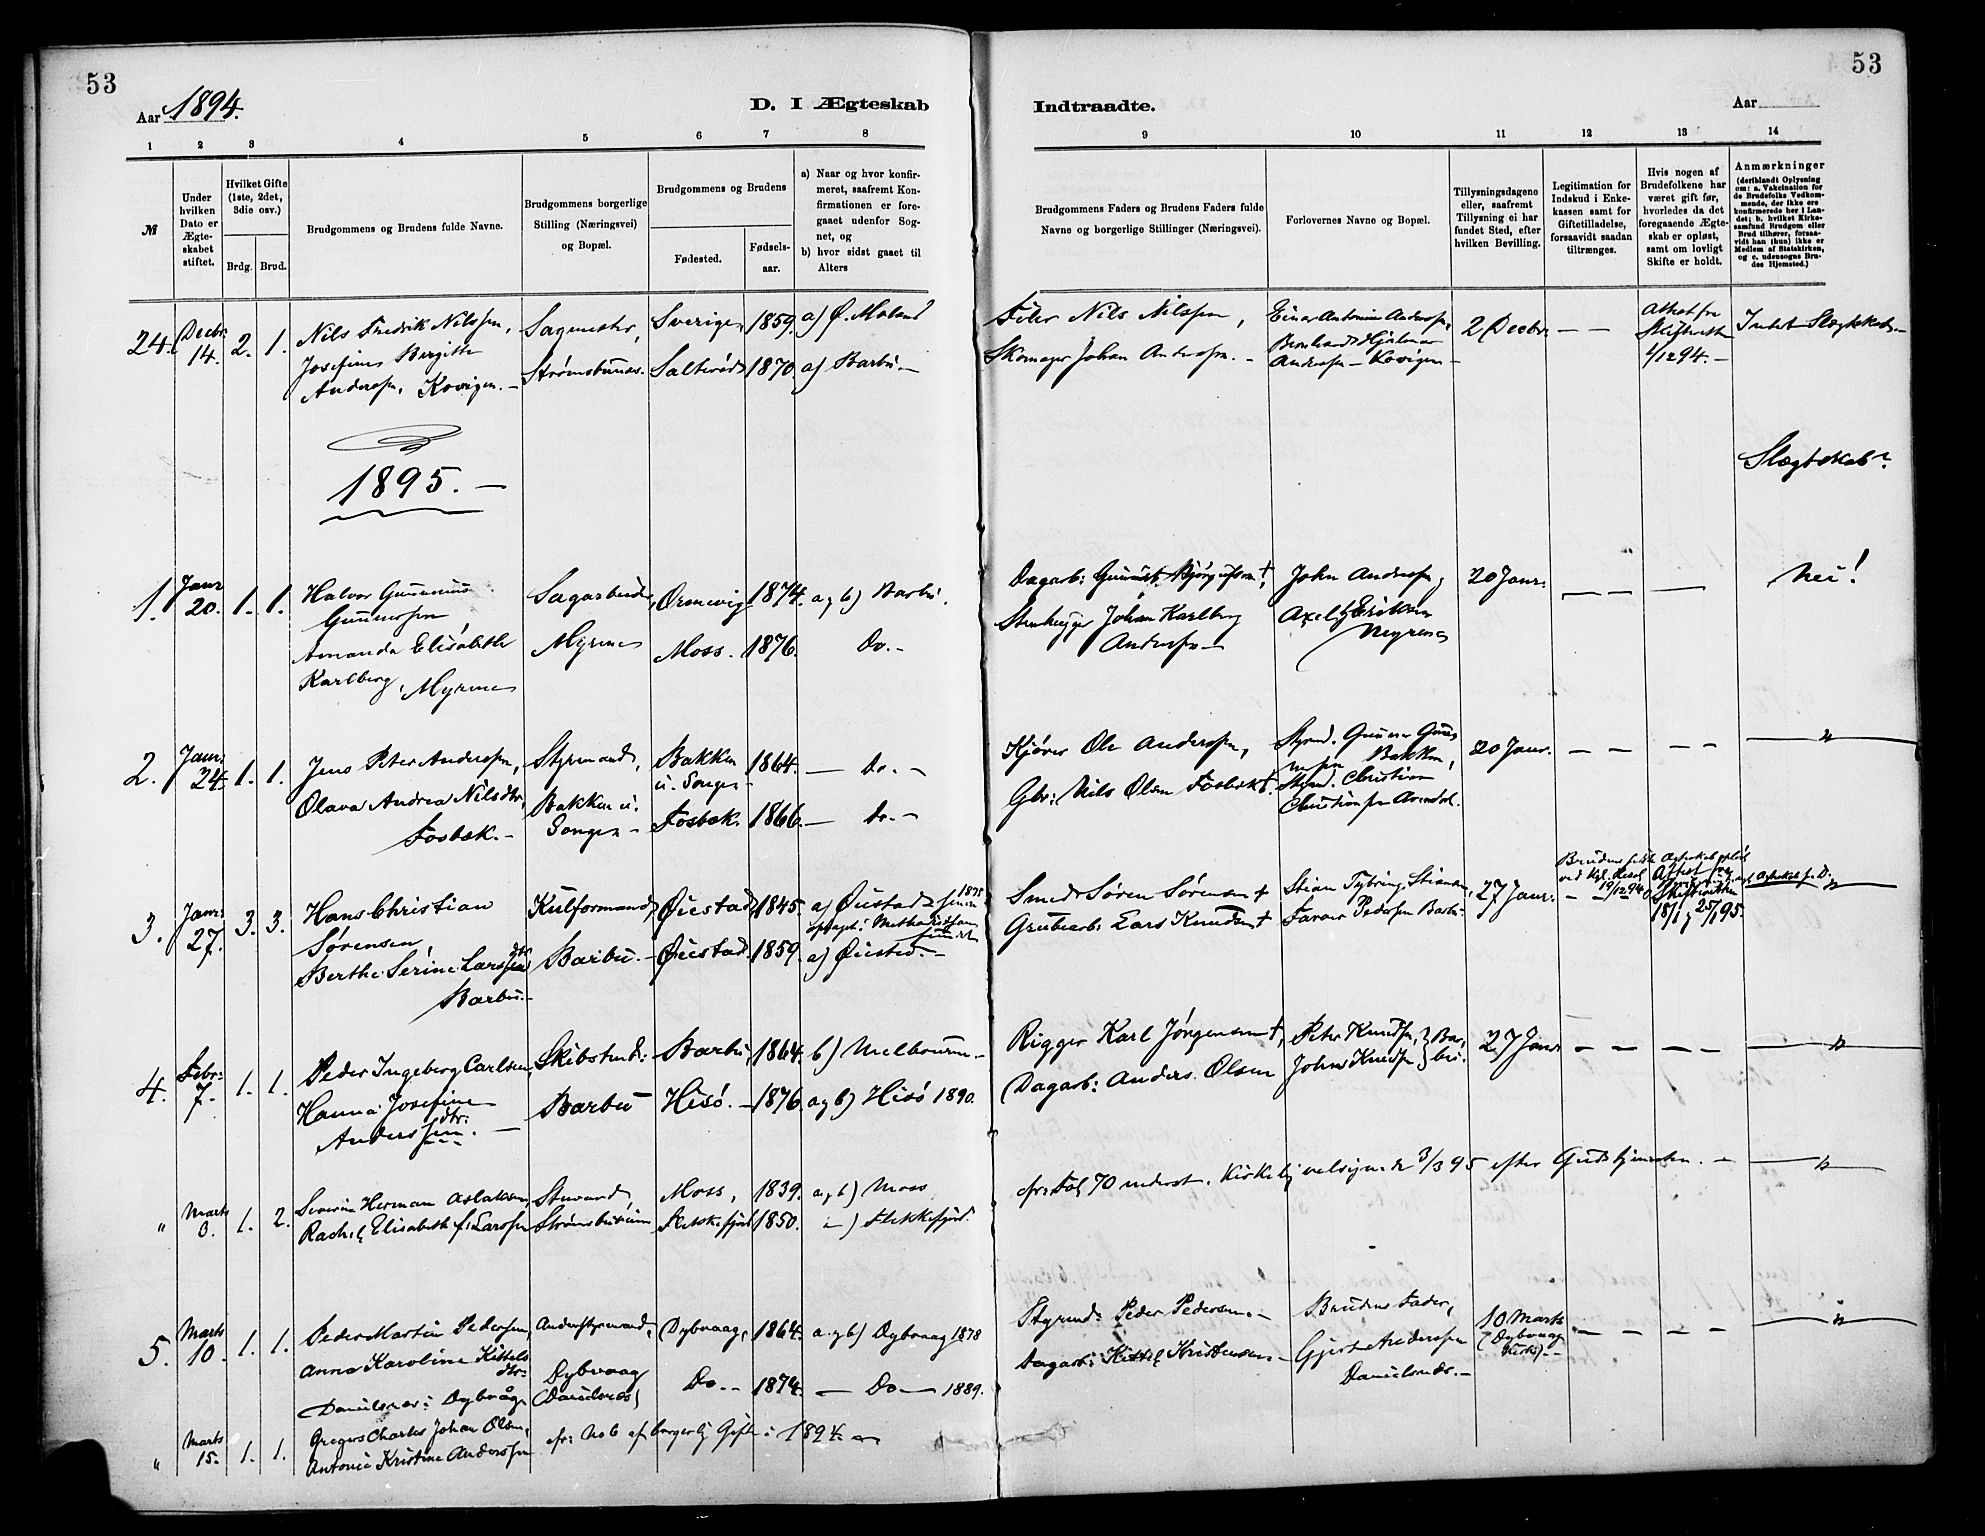 53
Aar 1894.
D. I Ægteskab
1 2 3 4 5 6 7 8
№
Under hvilken Dato er Ægteskabet stiftet.
Hvilket Gifte (1ste, 2det, 3die osv.)
Brdg. Brud.
Brudgommens og Brudens fulde Navne.
Brudgommens borgerlige Stilling (Næringsvei) og Bopæl.
Brudgommens og Brudens
Fødested.
Fødselsaar.
a) Naar og hvor konfirmeret, saafremt Konfirmationen er foregaaet udenfor Sognet, og
b) hvor sidst gaaet til Alters
24. Decbr. 14. 2. 1. Nils Fredrik Nilssen, Sagmester, Sverige, 1859. a) Ø. Moland
Josefine Birgitte Strømsbunes. Salterød 1870. a) Barbu.-
Andersen, Kovigen.-
1895.-
1. Janr 20. 1. 1. Halvor Gunnerius Sagarbeid., Ormevig 1874. a, b) Barbu.
Gunnersen
Amanda Elisabeth Myrene Moss. 1876. Do.-
Karlberg, Myrene
2. Janr. 24. 1. 1. Jens Peter Andersen, Styrmand, Bakken u. Songe- 1864. - Do.-
Olava Andrea Nilsdtr, Bakken u. Songe- Fosbæk. 1866. - Do.-
Fosbæk.-
3. Janr. 27. 3. 3. Hans Christian Kulformand, Øiestad, 1845. a) Øiestad
Sørensen,
Berthe Serine Larsdtr Barbu.- Øiestad 1859. a) Øiestad.-
Barbu.-
4. Febr: 7. 1. 1. Peder Ingeberg Carlsen, Skibstmd: Barbu, 1864. b) Melbourne-
Hanna Josefine Barbu Hisö.- 1876. a, b) Hisö 1890.
Andersdtr.-
" Marts 3. 1. 2. Severin Herman Aslaksen, Stuvard, Moss, 1839. a, b) Moss
Rachel Elisabeth f: Larssen Strømsbuneus Flekkefjord 1850. -) Flekkefjord.
5. Marts 10. 1. 1. Peder Martin Pedersen, Andenstyrmand, Dybvaag, 1864. a. b) Dybvaag 1878
Anna Karoline Kittelsdtr. Dybvaag Do.- 1874. - Do- 1889.
Danielsnes: Dybvåg (Danielsnes)
" Marts 15. 1. 1. Gregers Charles Johan Olsen, cfr: No 6 af borgerlig Gifte i 1894.
Antonia Kristine Anderssen
53
Indtraadte.
Aar
9 10 11 12 13 14
Brudgommens Faders og Brudens Faders fulde Navne og borgerlige Stillinger (Næringsvei).
Forlovernes Navne og Bopæl.
Tillysningsdagene eller, saafremt Tillysning ei har fundet Sted, efter hvilken Bevilling.
Legitimation for Indskud i Enkekassen samt for Giftetilladelse, forsaavidt saadan tiltrænges.
Hvis nogen af Brudefolkene har været gift før, hvorledes da det foregaaende Ægteskab er opløst, samt om lovligt Skifte er holdt.
Anmærkninger (deriblandt Oplysning om: a. Vakcination for de Brudefolks Vedkommende, der ikke ere konfirmerede her i Landet; b. hvilket Kirkesamfund Brudgom eller Brud tilhører, forsaavidt han (hun) ikke er Medlem af Statskirken, og c. udensogns Brudes Hjemsted.)
Filer Nils Nilssen, Einar Antonius Andersen, 2 Decbr. - - Attest fra Skifteretten 1/12 94.- Intet Slægtskab.-
Skomager Johan Andersen.- Bernhard Hjalmar
Andersen - Kovigen-
Slægtskab?
Dagarb: John Andersen, 20 Janr: - - Nei!
Stenhugger Johan Karlberg Axel Eriksen
Andersen- Myrene
Kjører Ole Andersen, Styrmd. Gunner Gunnersen Bakken, 20 Janr. - - - - "
Gbr: Nils Olsen Fosbæk†. Styrmd. Christian
Christiansen Arendal.
Smed Søren Sørensen † Stian Tybring Stiansen, 27 Janr: ved Kgl. Resol 19/12 94. Attest fra Skifteretten 18/1 & 25/1 95.
Grubearb: Lars Knudsen † Pedersen Barbu.
Rigger Karl Jörgensen †, Peter Knudsen, } Barbu. 27 Janr - - - - "
Dagarb: Anders Olsen John Knudsen
cfr: Fol 70 nederst. Kirkelig velsignede 3/3 95 efter Gudstjenesten.- "
Styrmd: Peder Pedersen.- Brudens Fader, 10 Marts (Dybvaag Kirke).- - - - - "
Dagarb: Kittel Kristensen.- Gjert Andersen
Danielsnes.-